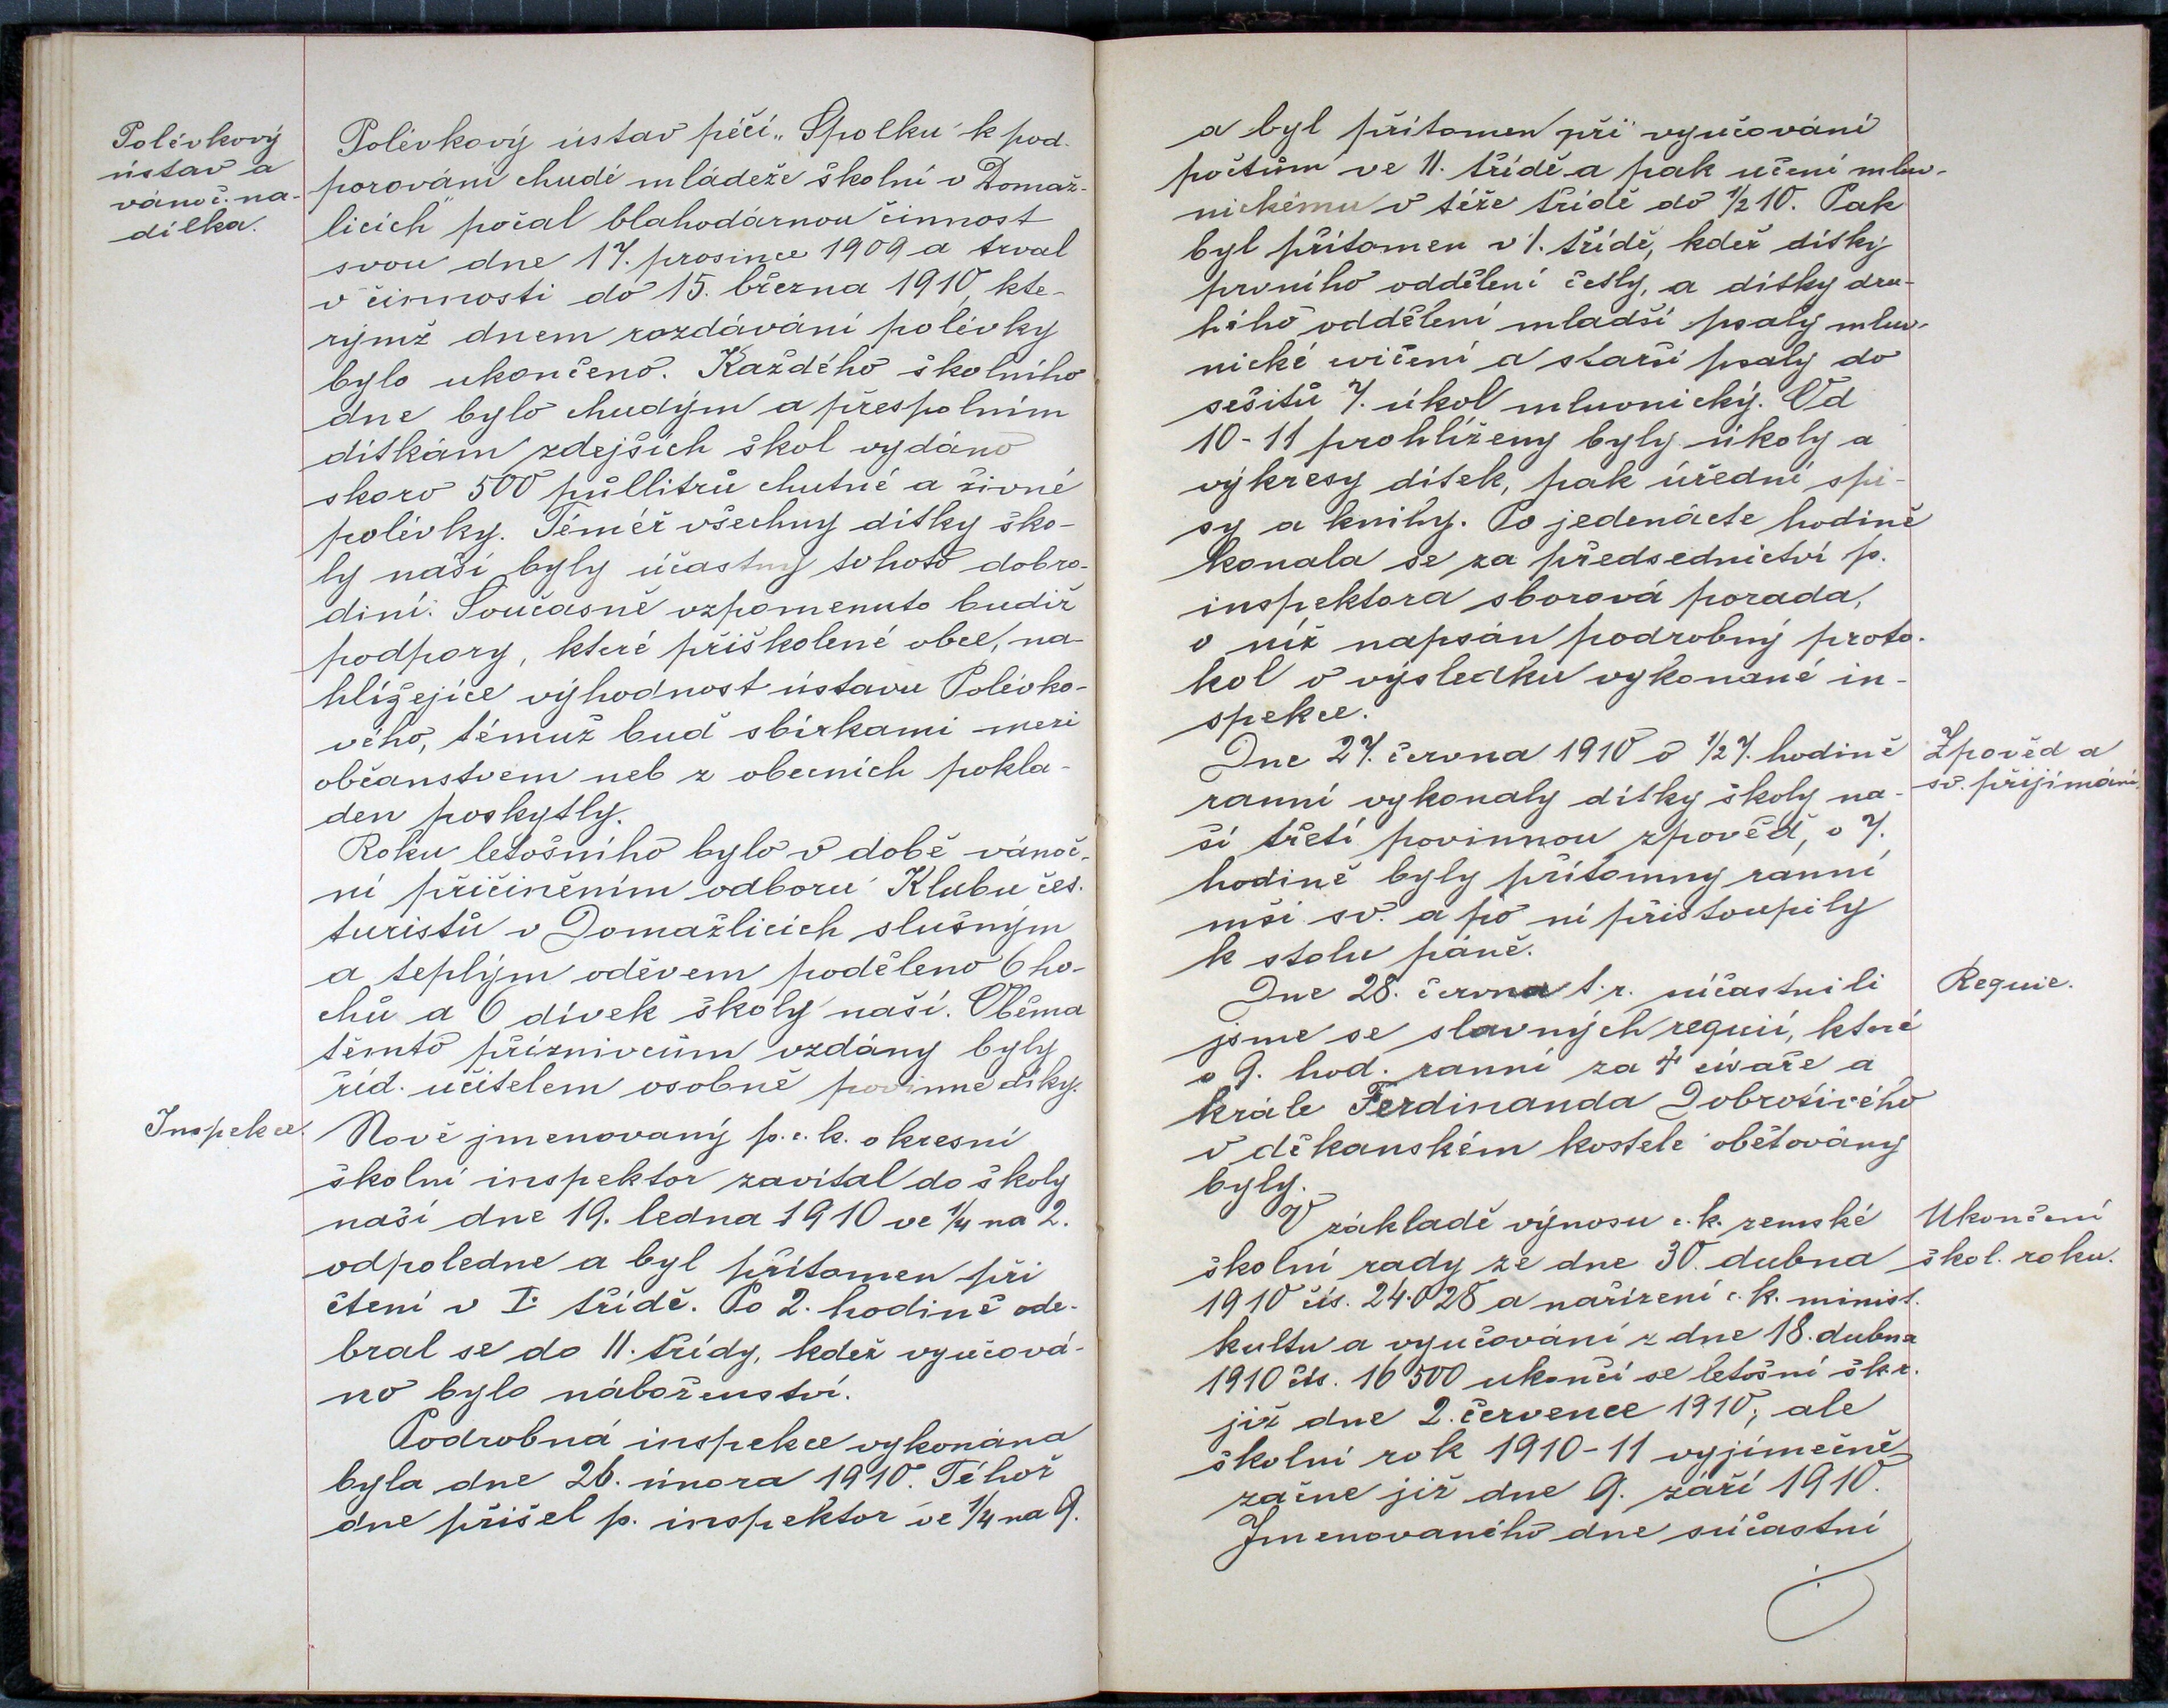 Polévkový
ústav a
vánoč. na-
dílka.
Polévkový ústav péčí „Spolku k pod-
porování chudé mládeže školní v Domaž-
licích" počal blahodárnou činnost
svou dne 17. prosince 1909 a trval
v činnosti do 15. března 1910, kte-
rýmž dnem rozdávání polévky
bylo ukončeno. Každého školního
dne bylo chudým a přespolním
dítkám zdejších škol vydáno
skoro 500 půllitrů chutné a živné
polévky. Téměř všechny dítky ško-
ly naší byly účastny tohoto dobro-
diní. Současně vzpomenuto budiž
podpory, které přiškolené obce, na-
hlížejíce výhodnost ústavu Polévko-
vého, témuž buď sbírkami mezi
občanstvem neb z obecních pokla-
den poskytly.
Roku letošního bylo v době vánoč-
ní přičiněním odboru Klubu čes.
turistů v Domažlicích slušným
a teplým oděvem poděleno 6 ho-
chů a 6 dívek školy naší. Oběma
těmto příznivcům vzdány byly
říd. učitelem osobně povinné díky.
Inspekce.
Nově jmenovaný p. c. k. okresní
školní inspektor zavítal do školy
naší dne 19. ledna 1910 ve 1/4 na 2.
odpoledne a byl přítomen při
čtení v I. třídě. Po 2. hodině ode-
bral se do II. třídy, kdež vyučová-
no bylo náboženství.
Podrobná inspekce vykonána
byla dne 26. února 1910. Téhož
dne přišel p. inspektor ve 1/4 na 9.
a byl přítomen při vyučování
počtům ve II. třídě a pak učení mluv-
nickému v téže třídě do 1/2 10. Pak
byl přítomen v I. třídě, kdež dítky
prvního oddělení četly, a dítky dru-
hého oddělení mladší psaly mluv-
nické cvičení a starší psaly do
sešitů 7. úkol mluvnický. Od
10-11 prohlíženy byly úkoly a
výkresy dítek, pak úřední spi-
sy a knihy. Po jedenácte hodině
konala se za předsednictví p.
inspektora sborová porada,
o níž napsán podrobný proto-
kol o výsledku vykonané in-
spekce.
Dne 27. června 1910 o 1/2 7. hodině
ranní vykonaly dítky školy na-
ší třetí povinnou zpověď, o 7.
hodině byly přítomny ranní
mši sv. a po ní přistoupily
k stolu páně.
Zpověd a
sv. přijímání.
Dne 28. června t. r. súčastnili
jsme se slavných requií, které
o 9. hod. ranní za † císaře a
krále Ferdinanda Dobrotivého
v děkanském kostele obětovány
byly.
Requie.
V základě výnosu c. k. zemské
školní rady ze dne 30. dubna
1910 čís. 24.028 a nařízení c. k. minist.
kultu a vyučování z dne 18. dubna
1910 čís. 16500 ukončí se letošní šk. r.
již dne 2. července 1910, ale
školní rok 1910-11 vyjímečně
začne již dne 9. září 1910.
Jmenovaného dne súčastní
Ukončení
škol. roku.